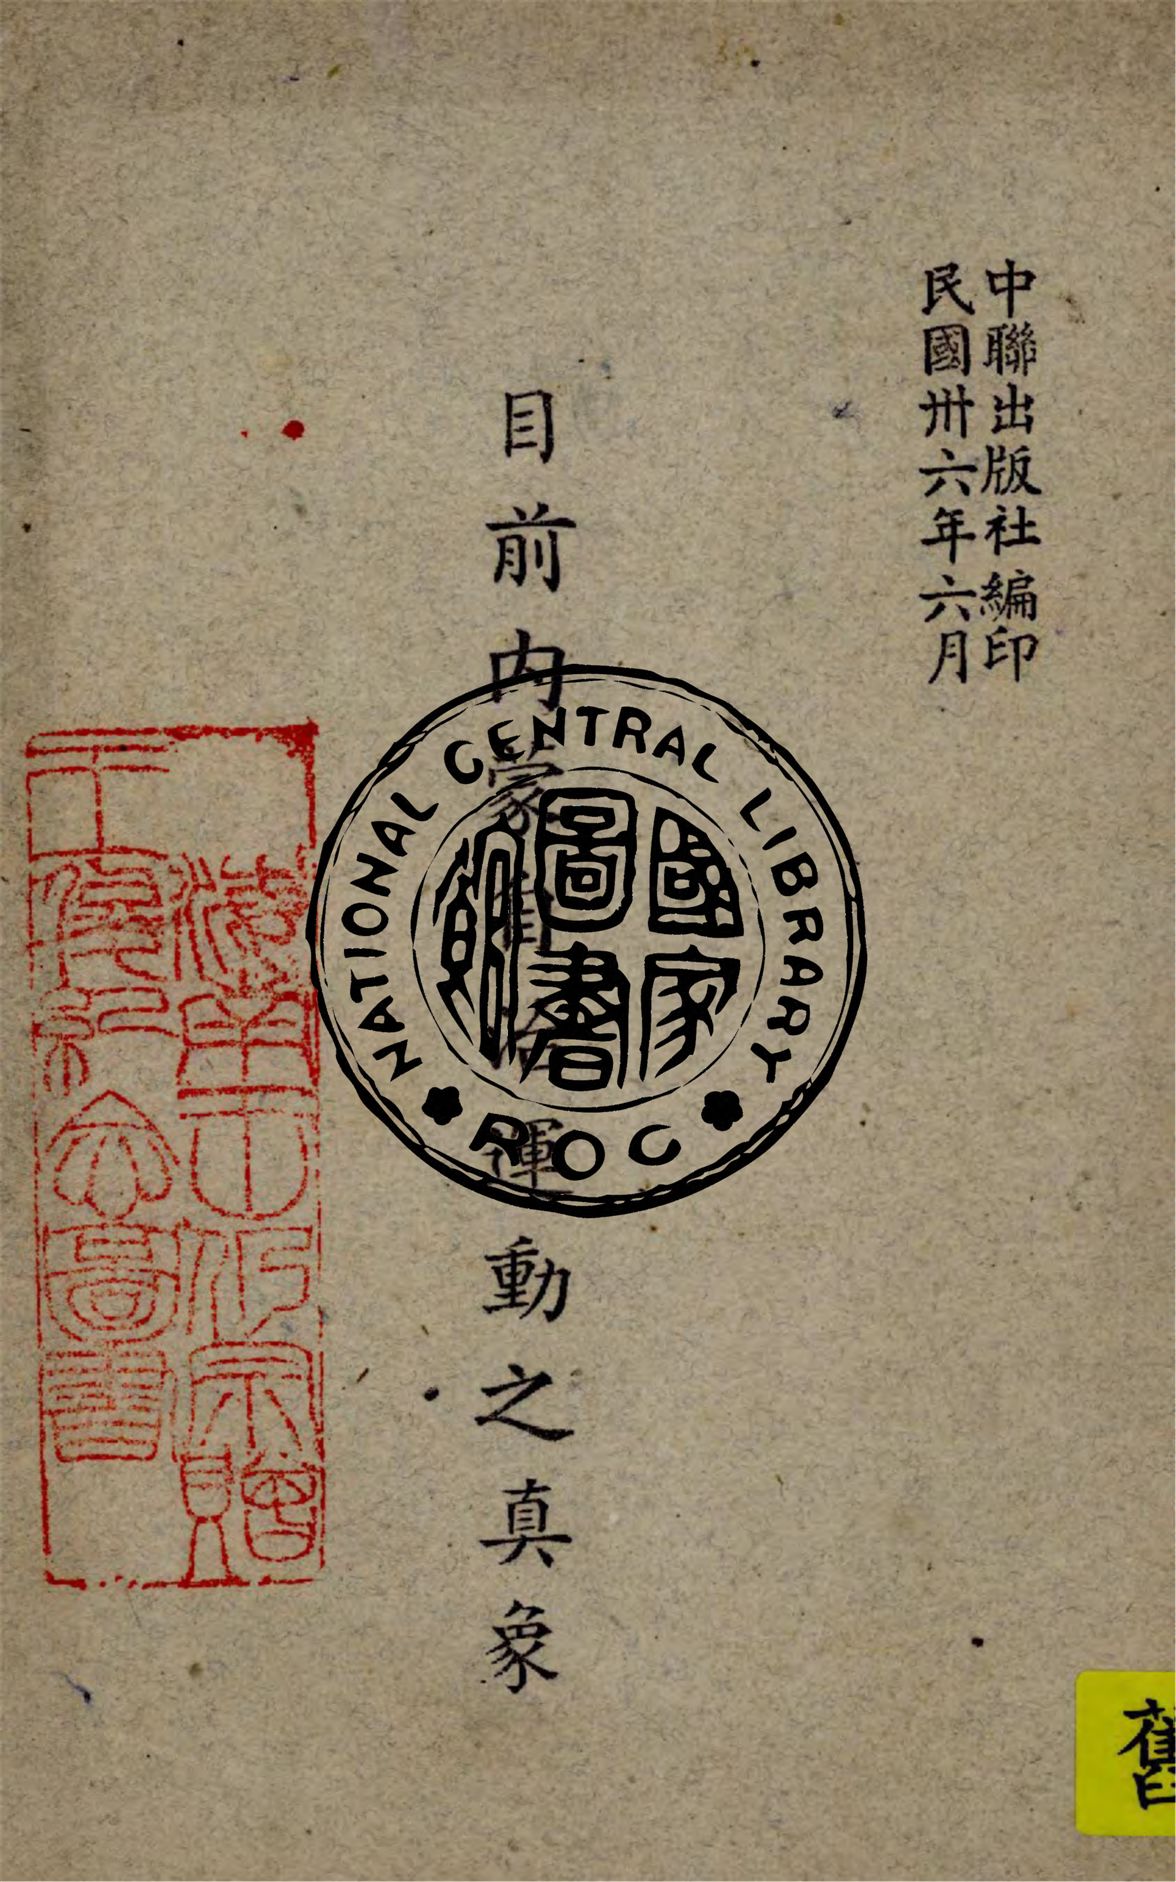 中聯出版社編印
民國卅六年六月
目前內蒙自治運動之真象
NATIONAL CENTRAL LIBRARY
國家圖書館
ROC
舊